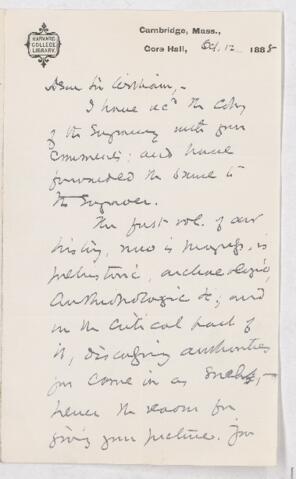 HARVARD
COLLEGE
LIBRARY.
Cambridge, Mass.,
Gore Hall, Oct. 12 1888
Dear Sir William,-
I have recd the copy
of the Engraving with your
comments; and have
forwarded the same to
the Engraver.
The first vol. of our
history, now in progress, is
prehistoric, archaeologic,
anthropologic &c; and
in the critical part of
it, discussing authorities
you come in as such,-
hence the reason for
giving your picture. You